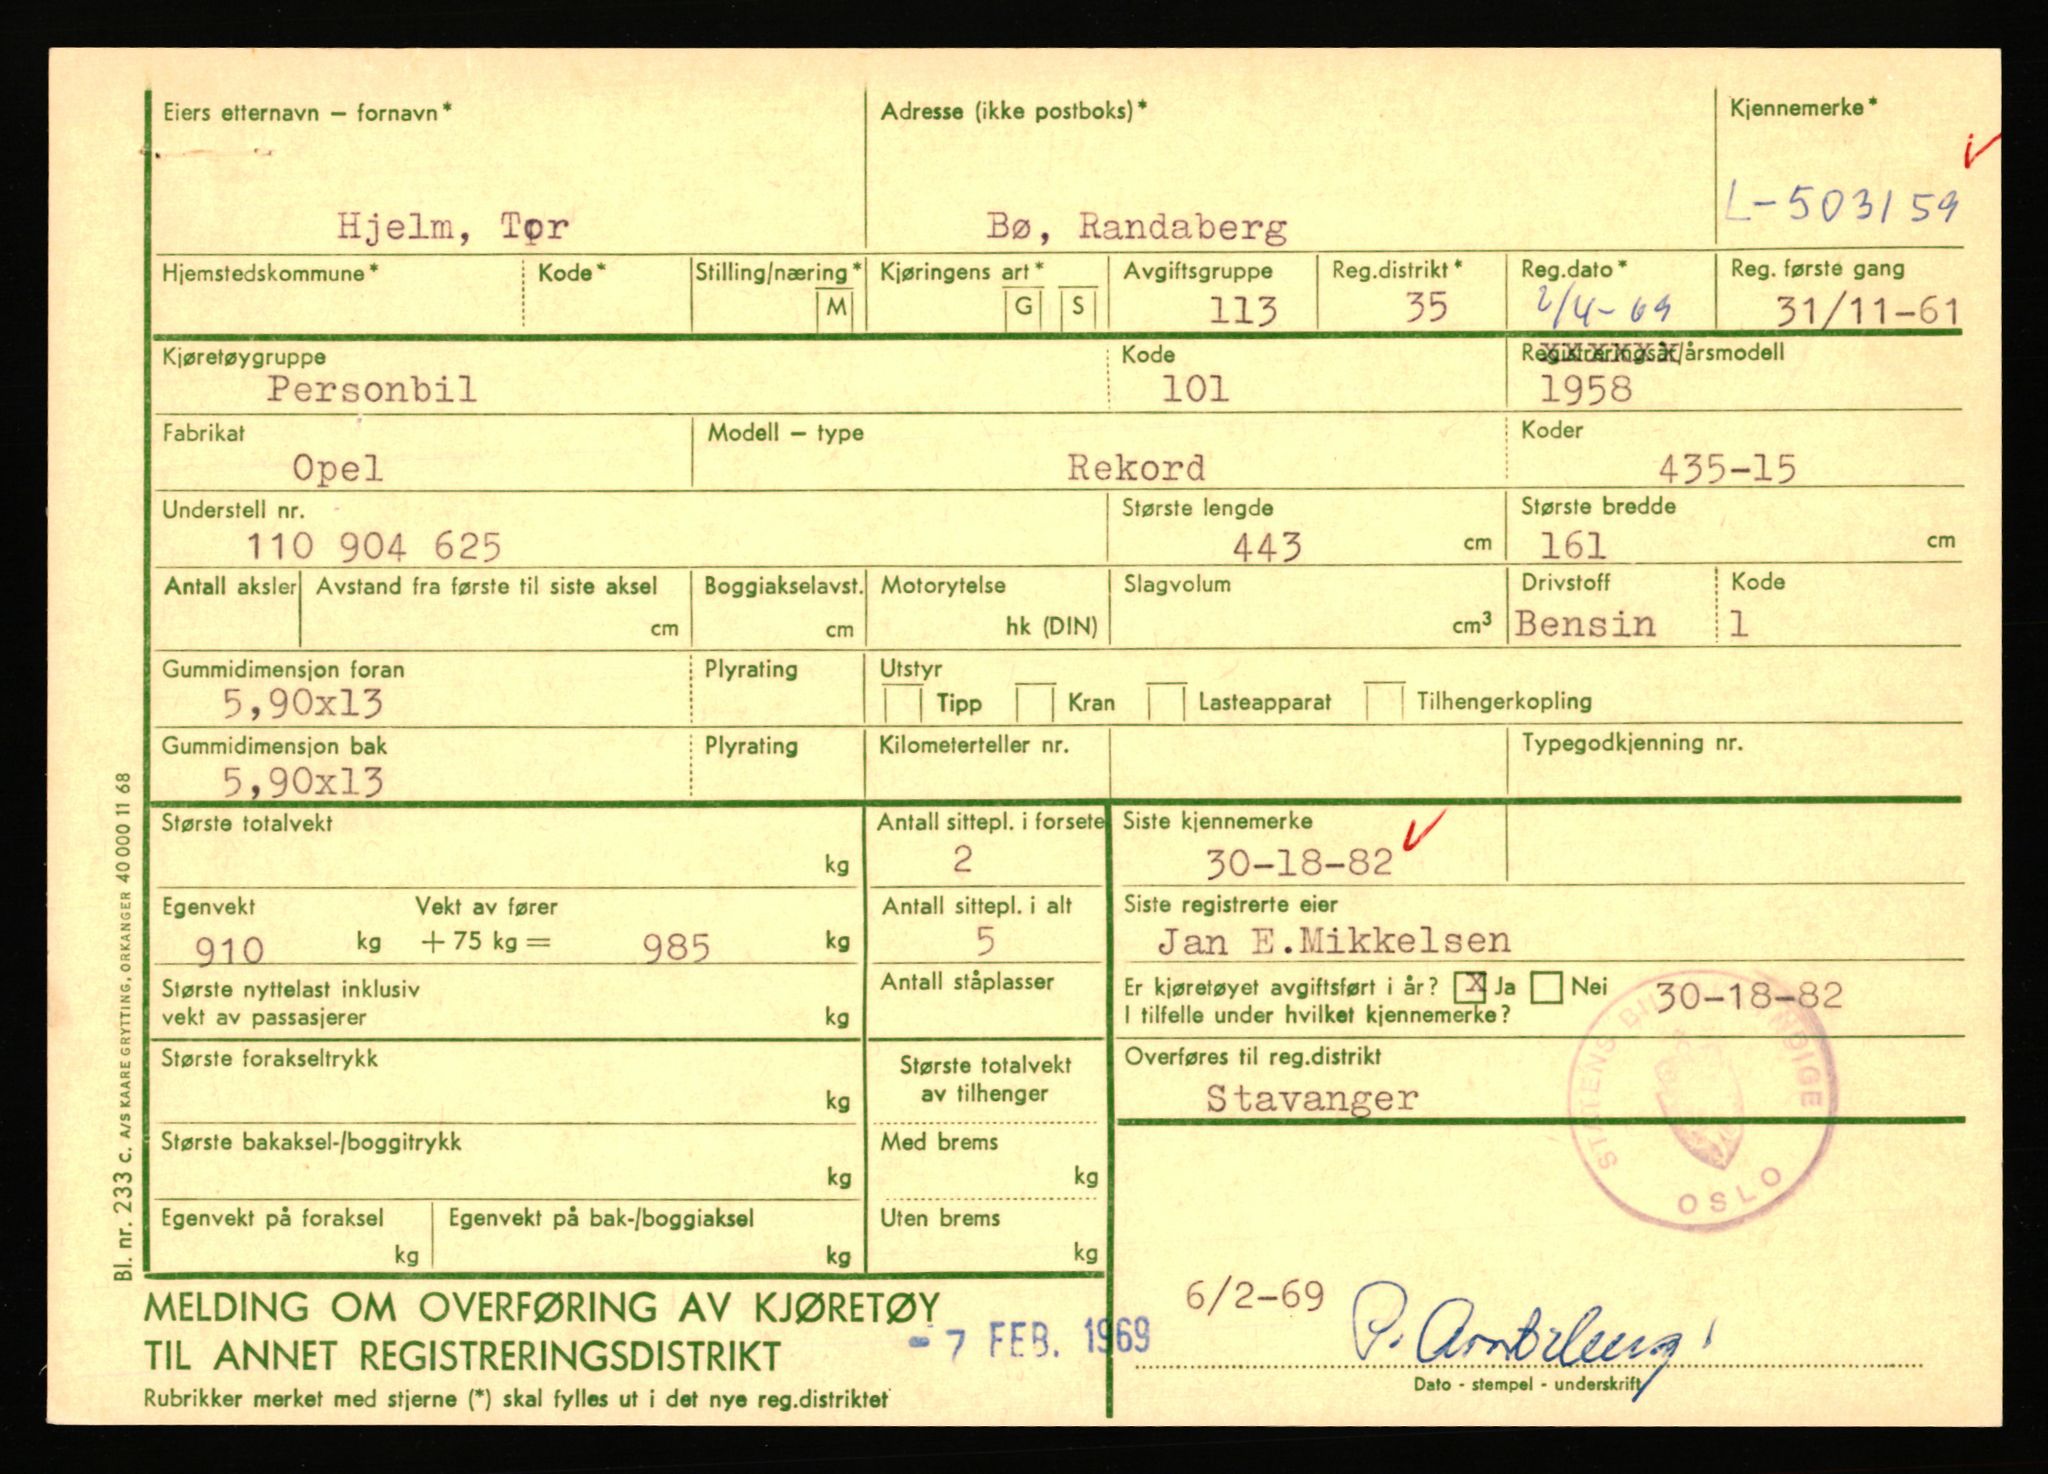 Eiers etternavn – fornavn*
Adresse (ikke postboks)*
Kjennemerke*
Hjelm, Tor
Bø, Randaberg
L-503159
Hjemstedskommune*
Kode*
Stilling/næring*
M
Kjøringens art*
G
S
Avgiftsgruppe
113
Reg.distrikt*
35
Reg.dato*
2/4-69
Reg. første gang
31/11-61
Kjøretøygruppe
Personbil
Kode
101
Registreringsår/årsmodell
1958
Fabrikat
Opel
Modell – type
Rekord
Koder
435-15
Understell nr.
110 904 625
Største lengde
443 cm
Største bredde
161 cm
Antall aksler
Avstand fra første til siste aksel
cm
Boggiakselavst.
cm
Motorytelse
hk (DIN)
Slagvolum
cm³
Drivstoff
Bensin
Kode
1
Gummidimensjon foran
5,90x13
Plyrating
Utstyr
Tipp
Kran
Lasteapparat
Tilhengerkopling
Gummidimensjon bak
5,90x13
Plyrating
Kilometerteller nr.
Typegodkjenning nr.
Største totalvekt
kg
Antall sittepl. i forsete
2
Siste kjennemerke
30-18-82
Egenvekt
910 kg
Vekt av fører
+ 75 kg = 985 kg
Antall sittepl. i alt
5
Siste registrerte eier
Jan E.Mikkelsen
Største nyttelast inklusiv
vekt av passasjerer
kg
Antall ståplasser
Er kjøretøyet avgiftsført i år? x Ja Nei
I tilfelle under hvilket kjennemerke?
30-18-82
Største forakseltrykk
kg
Største totalvekt
av tilhenger
Overføres til reg.distrikt
Stavanger
Største bakaksel-/boggitrykk
kg
Med brems
kg
Egenvekt på foraksel
kg
Egenvekt på bak-/boggiaksel
kg
Uten brems
kg
STATENS BIL
OSLO
MELDING OM OVERFØRING AV KJØRETØY
TIL ANNET REGISTRERINGSDISTRIKT
Rubrikker merket med stjerne (*) skal fylles ut i det nye reg.distriktet
- 7 FEB. 1969
6/2-69
Dato - stempel - underskrift
Bl. nr. 233 c. A/S KAARE GRYTTING, ORKANGER 40 000 11 68